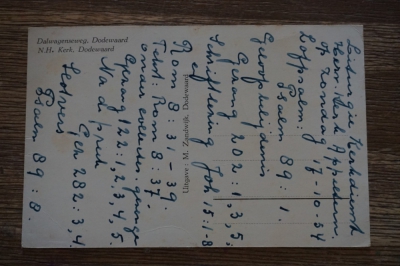 Dalwagenseweg, Dodewaard
N.H. Kerk, Dodewaard
Uitgave: M. Zandwijk, Dodewaard
Liturgie Kerkdienst
Herv. Kerk Appeltern.
op Zondag 17-10-54
Loofpsalm:
Psalm 89: 1.
Geloofsbelijdenis
Gezang 202: 1, 3, 5.
Schriftlezing Joh 15: 1-8
Rom 8: 31-39.
Tekst: Rom 8: 37.
onder collecte. gezang
Gezang 122: 1, 2, 3, 4, 5.
Na de preek
Gez 282: 3, 4
Slotvers
Psalm 89: 8.